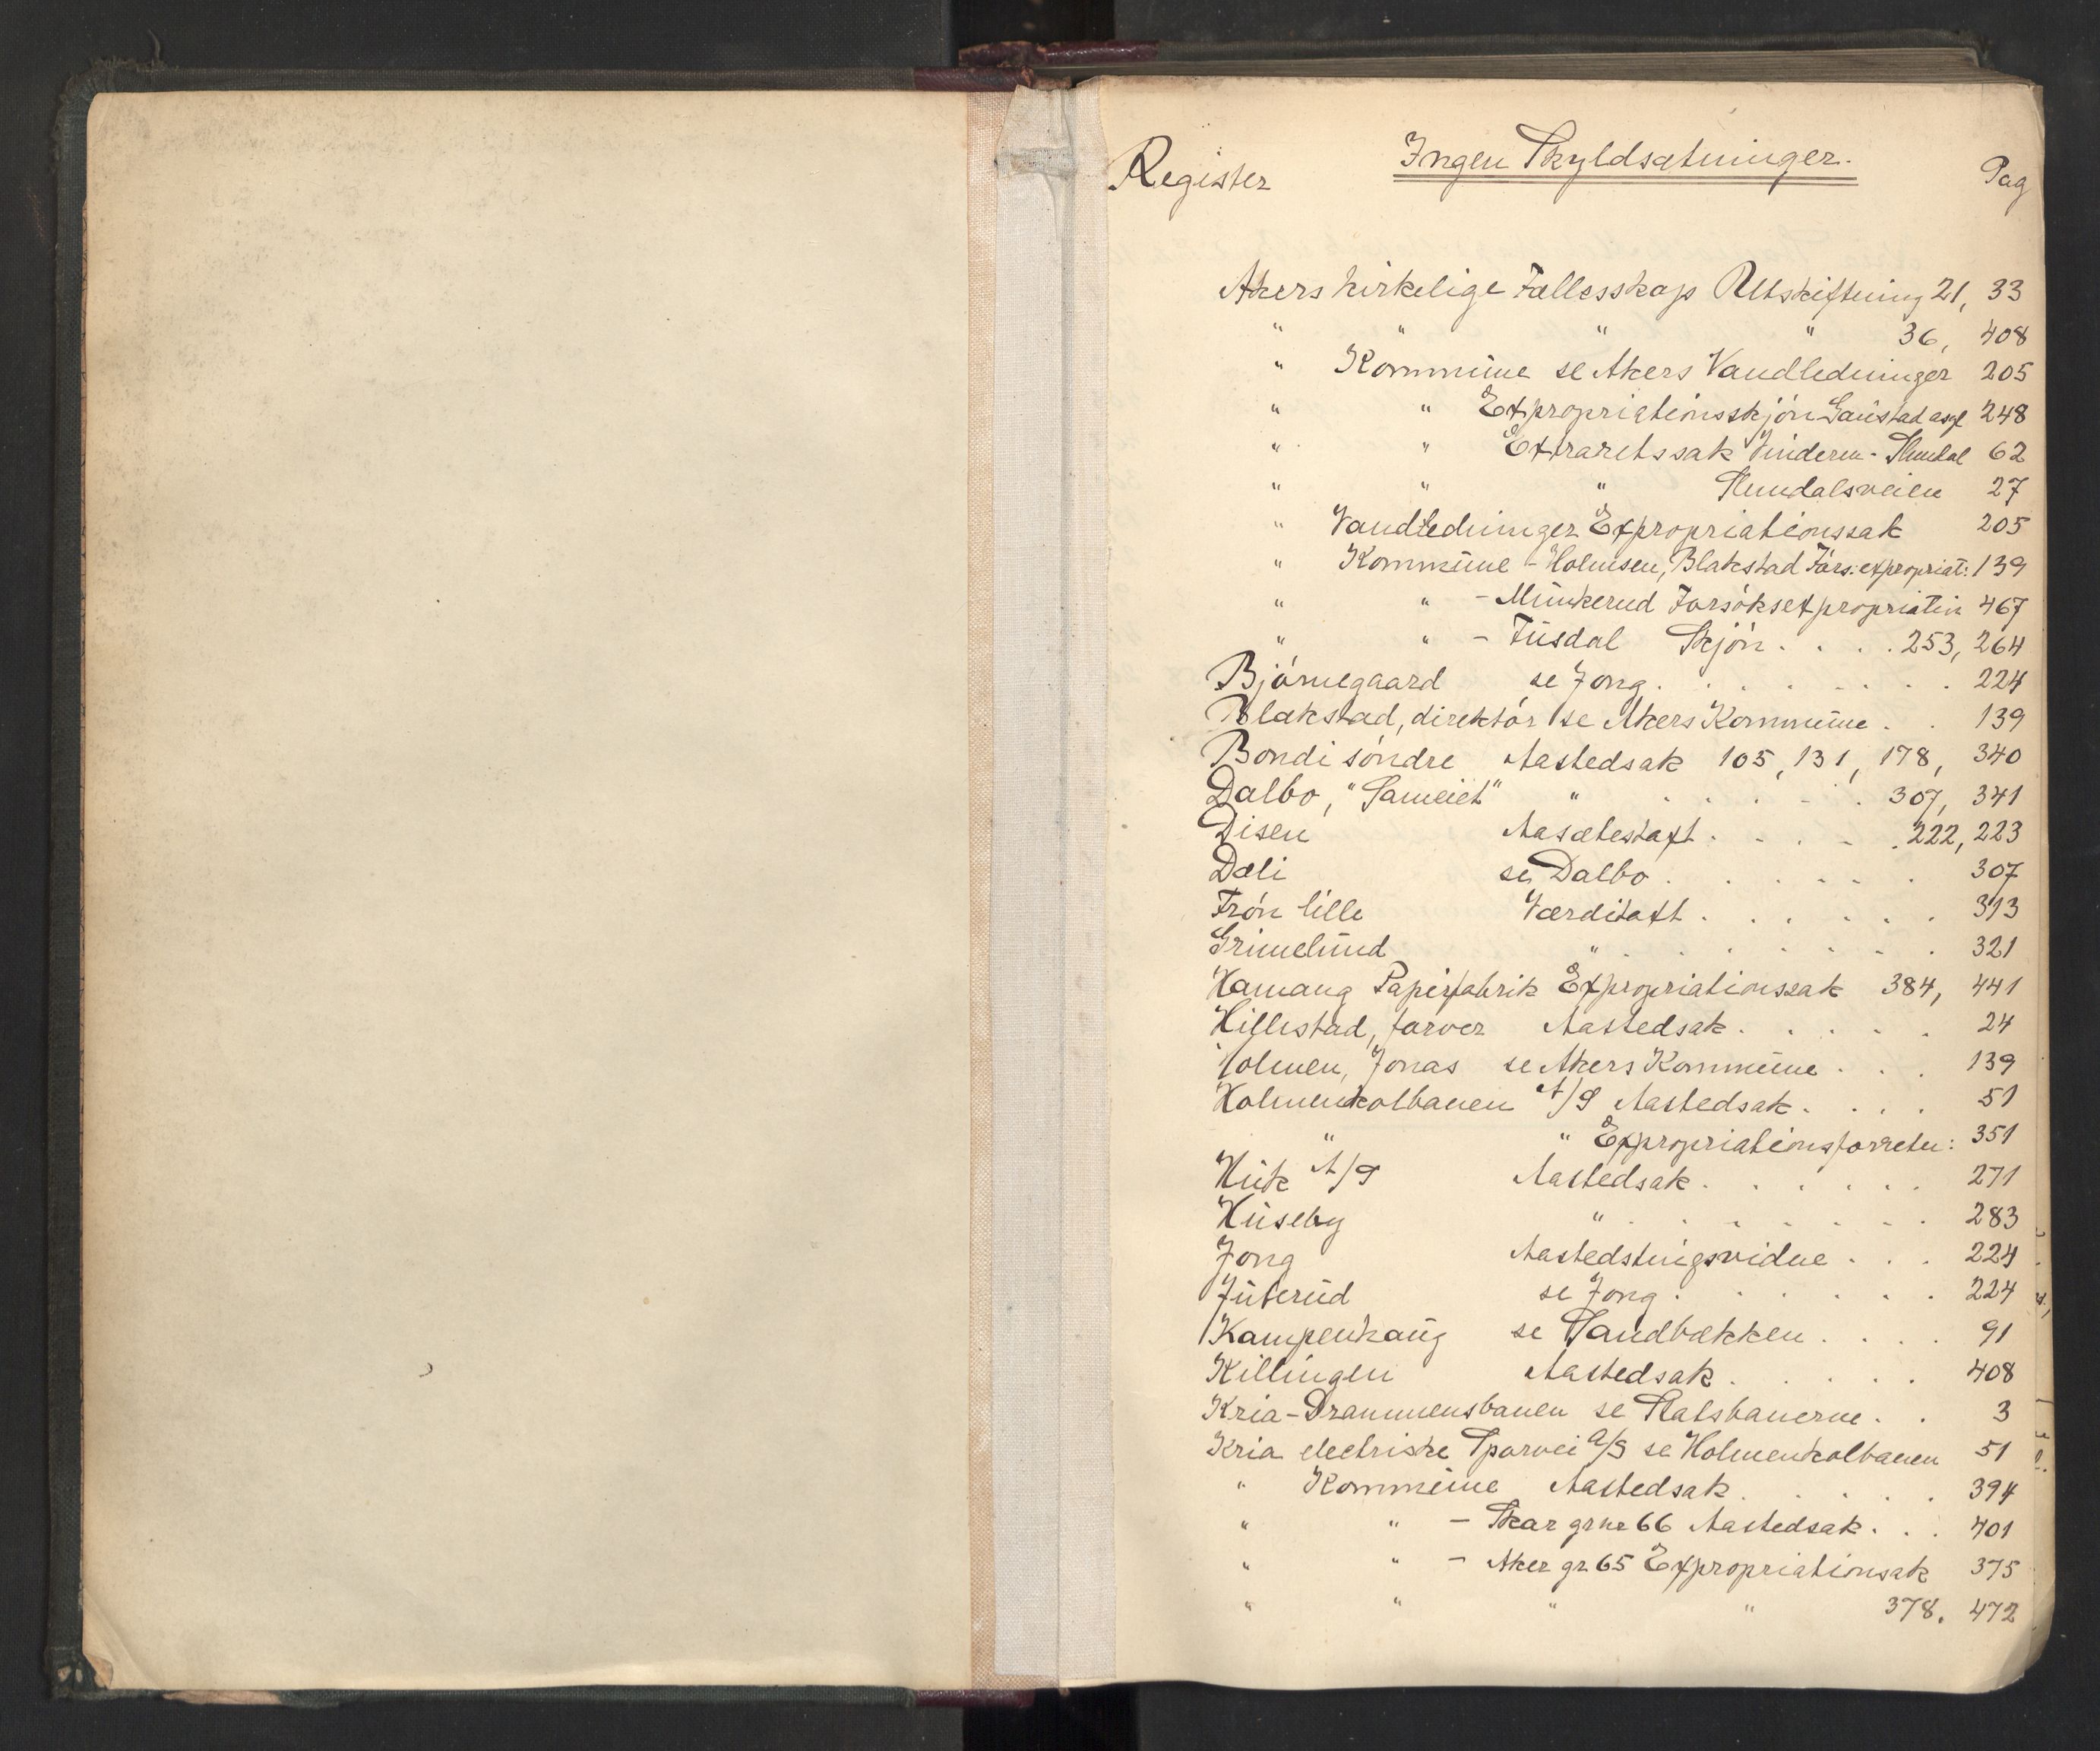 Register Ingen Skyldsætninger. Pag
Akers kirkelige Fællesskap Utskiftning 21, 33
" " " " 36, 408
" Kommune se Akers Vandledninger 205
" " Expropriationsskjön Gaustad asyl 248
" " Extraretssak Vinderen - Slemdal 62
" " " Slemdalsveien 27
" Vandledninger Expropriationssak 205
" Kommune - Holmsen, Blakstad Förs: expropriat: 139
" " - Munkerud Forsöksexpropriation 467
" " - Fusdal Skjön . . . . 253, 264
Björnegaard se Jong . . . . . . . . 224
Blakstad, direktör se Akers Kommune . . 139
Bondi söndre Aastedsak 105, 131, 178, 340
Dalbo, "Sameiet" " . . . . . . 307, 341
Disen Aasætestaxt . . . . . 222, 223
Dæli se Dalbo . . . . . . 307
Frön lille Værditaxt . . . . . . 313
Grimelund " . . . . . . . . 321
Hamang Papirfabrik Expropriationssak 384, 441
Hillestad, farver Aastedsak . . . . . 24
Holmen, Jonas se Akers Kommune . . . 139
Holmenkolbanen A/S Aastedsak . . . . 51
" " Expropriationsforretn: 351
Huk A/S Aastedsak . . . . . . 271
Huseby " . . . . . . . . 283
Jong Aastedstingsvidne . . . 224
Juterud se Jong . . . . . . 224
Kampenhaug se Sandbækken . . . . 91
Killingen Aastedsak . . . . . 408
Kria - Drammensbanen se Statsbanerne . . 3
Kria electriske Sporvei A/S se Holmenkolbanen 51
" Kommune Aastedsak . . . . . 394
" " - Skar grnr 66 Aastedsak . . . 401
" " - Aker gr 65 Expropriationsak 375
" " " " 378. 472